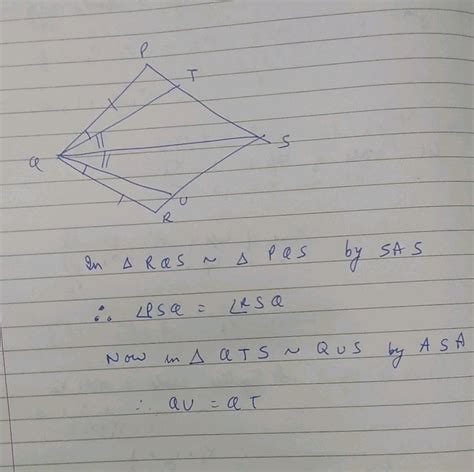 P
T
Q
S
U
R
In Δ RQS ~ Δ PQS by SAS
∴ ∠PSQ = ∠RSQ
Now in Δ QTS ~ QUS by ASA
∴ QU = QT